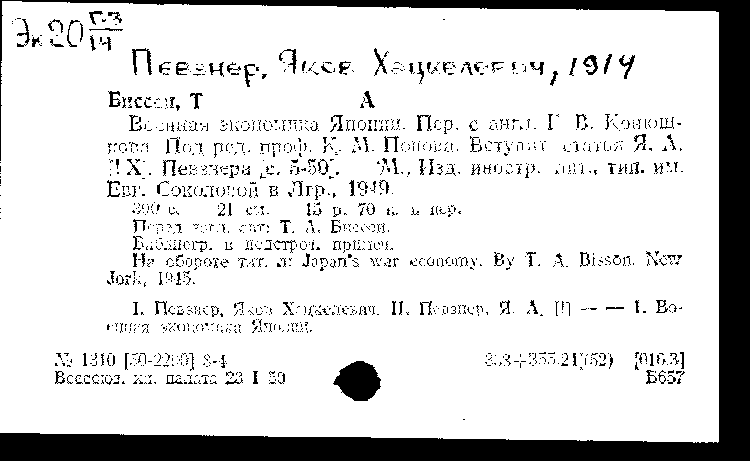 Эк20 Г-3/14
Певзнер, Яков Хацкелевич, 1914
Биссон, Т А
Военная экономика Японии. Пер. с англ. Г. В. Конюш-
кова. Под ред. проф. К. М. Попова. Вступит. статья Я. А.
[! X]. Певзнера [с. 5-50]. М., Изд. иностр. лит., тип. им.
Евг. Соколовой в Лгр., 1949.
300 с. 21 см. 15 р. 70 к. в пер.
Перед загл. авт: Т. А. Биссон.
Библиогр. в подстроч. примеч.
На обороте тит. л: Japan's war economy. By T. A. Bisson. New
Jork, 1945.
I. Певзнер, Яков Хацкелевич. II. Певзнер, Я. А. [!] — — 1. Во-
енная экономика Японии.
№ 1310 [50-2200] 3-4 [016.3]
Всесоюз. кн. палата 23 I 50 Б657